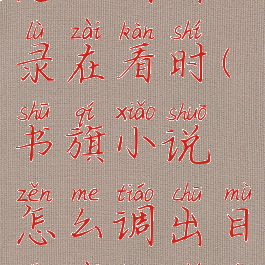 lù zài kàn shí
录在看时(
shū qí xiǎo shuō
书旗小说
zěn me tiáo chū mù
怎么调出目